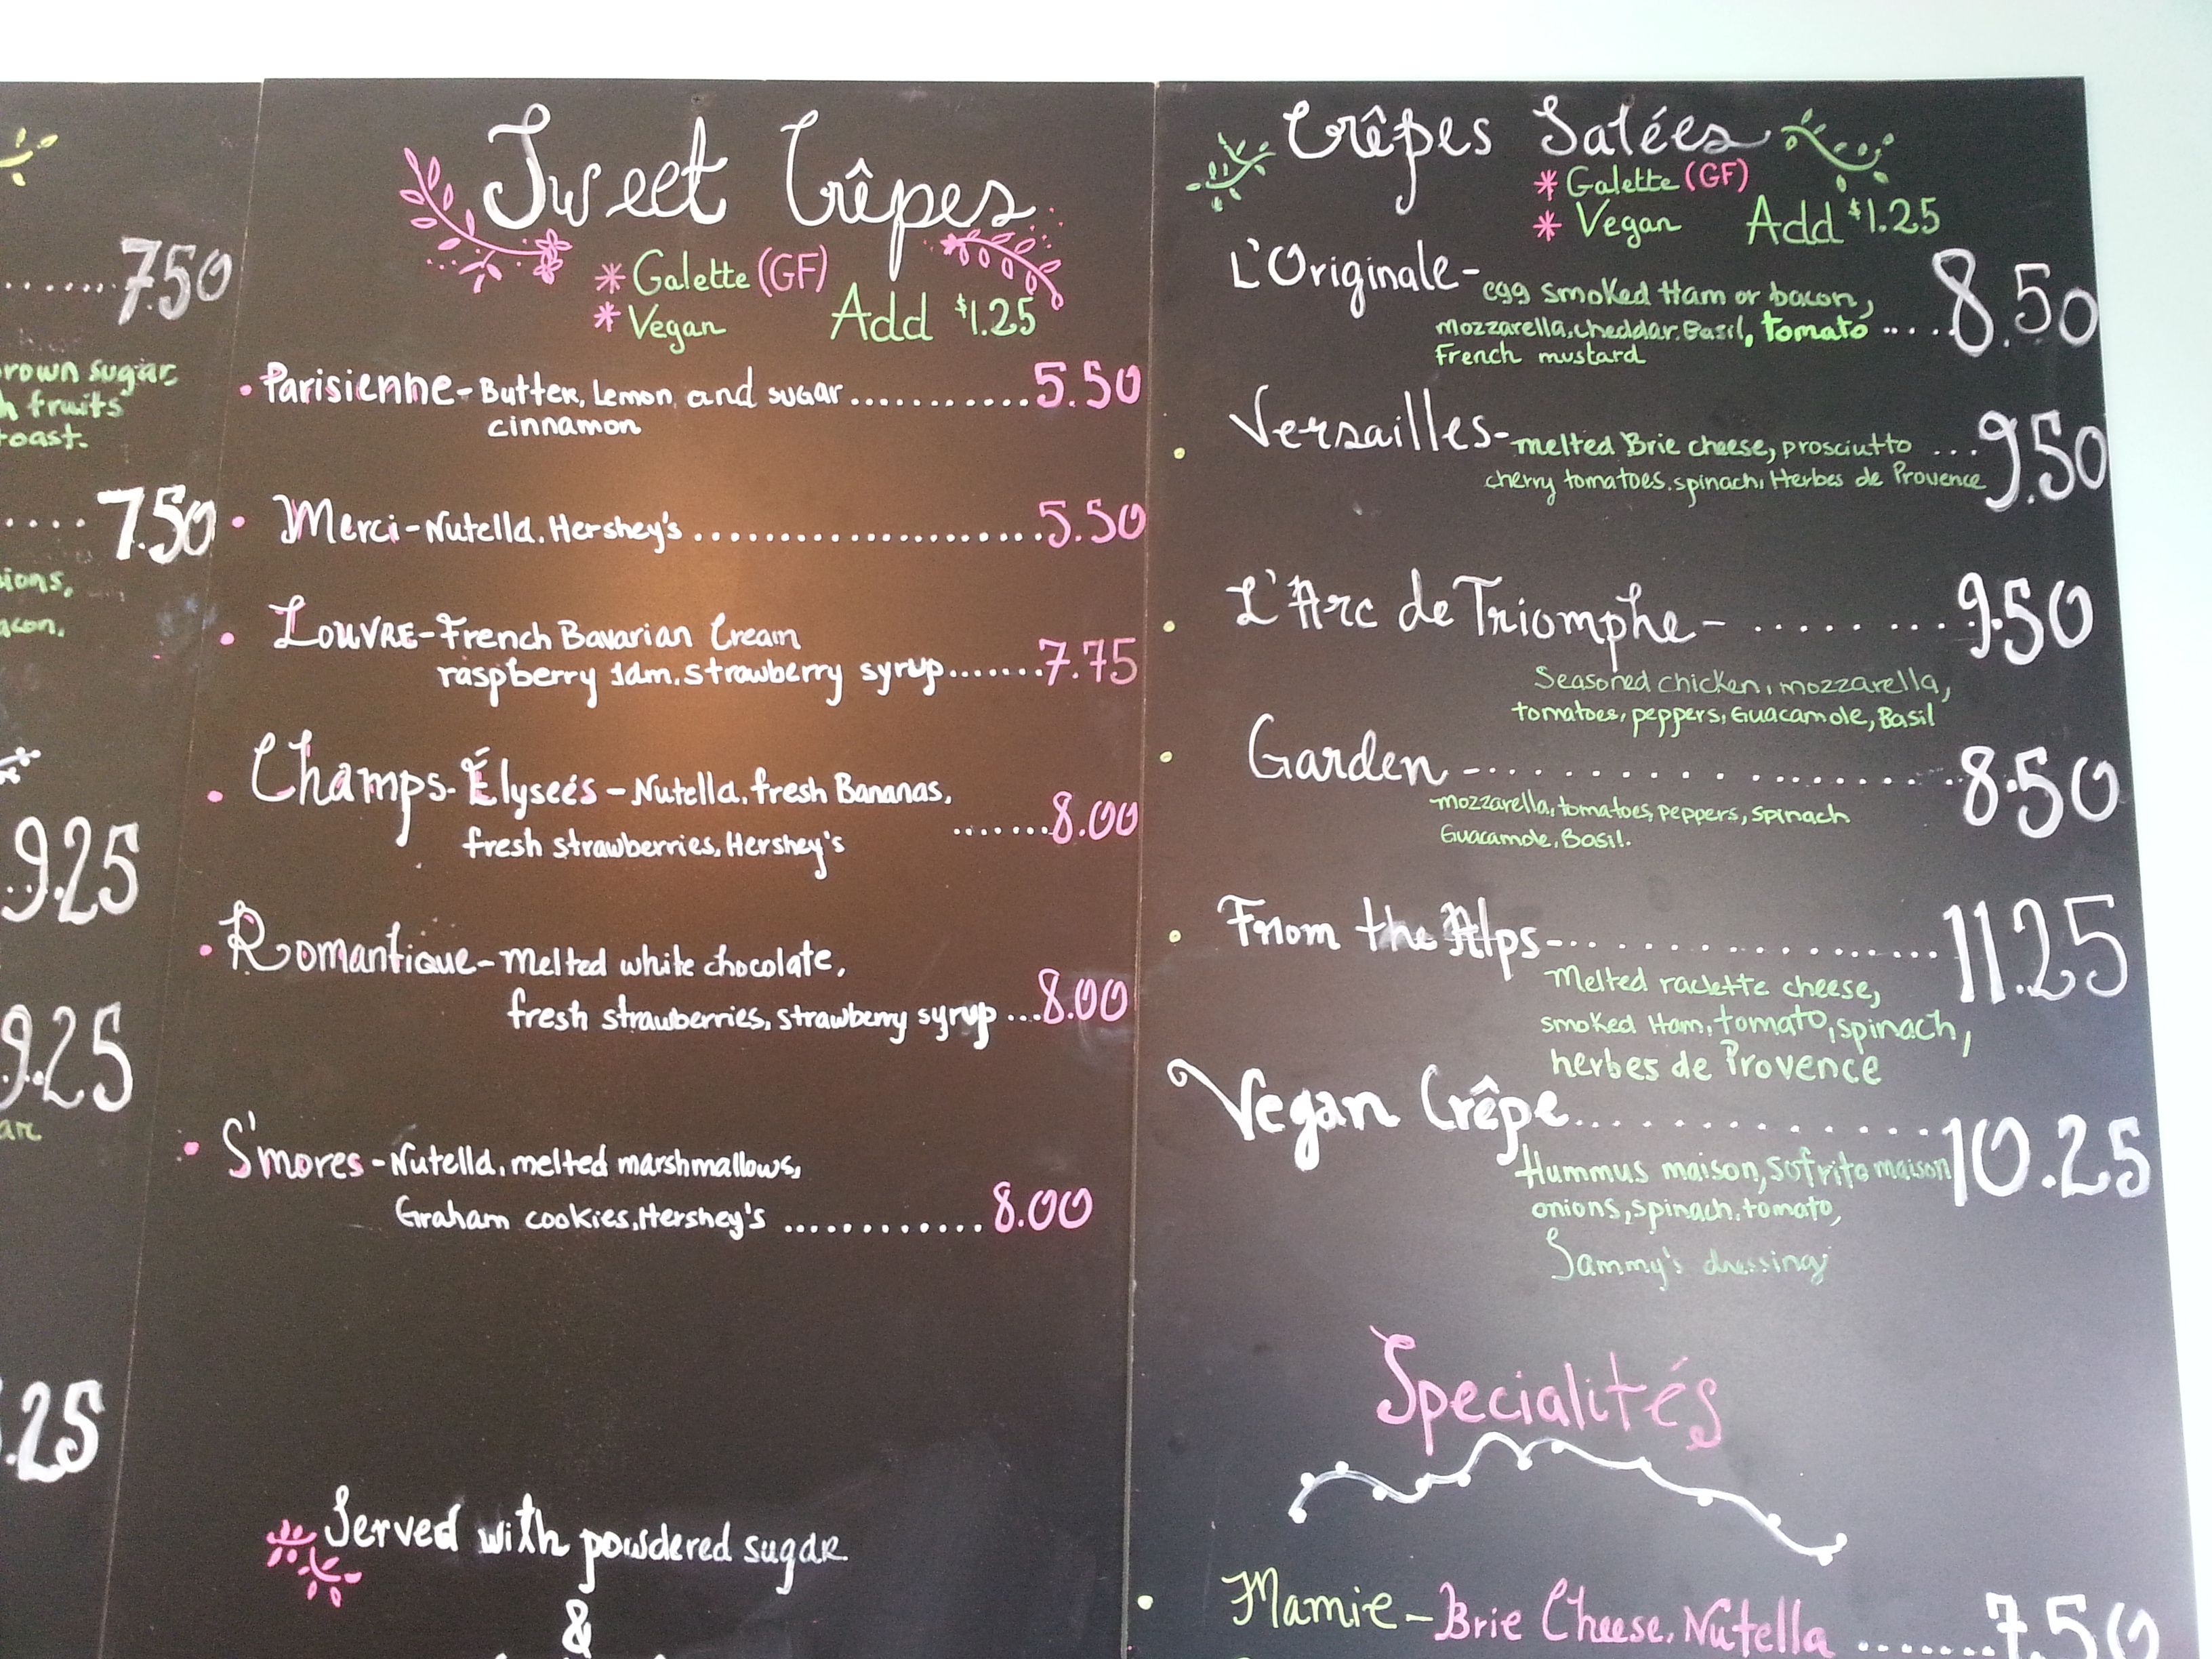 7.50
rown sugar,
h fruits
oast.
7.50
ions,
acon,
9.25
9.25
ar
.25
Sweet Crêpes
* Galette (GF)
* Vegan Add $1.25
• Parisienne - Butter, Lemon, and sugar ........... 5.50
cinnamon
• Merci - Nutella, Hershey's ..................... 5.50
• Louvre - French Bavarian Cream
raspberry Jam, strawberry syrup ....... 7.75
• Champs-Élyseés - Nutella, fresh Bananas,
fresh strawberries, Hershey's ....... 8.00
• Romantique - Melted white chocolate,
fresh strawberries, strawberry syrup ... 8.00
• S'mores - Nutella, melted marshmallows,
Graham cookies, Hershey's ............ 8.00
Served with powdered sugar
&
Crêpes Salées
* Galette (GF)
* Vegan Add $1.25
L'Originale - egg smoked Ham or bacon,
mozzarella, cheddar, Basil, tomato .... 8.50
French mustard
• Versailles - melted Brie cheese, prosciutto ... 9.50
cherry tomatoes, spinach, Herbes de Provence
• L'Arc de Triomphe - ......... 9.50
Seasoned chicken, mozzarella,
tomatoes, peppers, Guacamole, Basil
• Garden - .................. 8.50
mozzarella, tomatoes, peppers, spinach
Guacamole, Basil.
• From the Alps - ................ 11.25
Melted raclette cheese,
smoked Ham, tomato, spinach,
herbes de Provence
Vegan Crêpe .............. 10.25
Hummus maison, Sofrito maison
onions, spinach, tomato,
Sammy's dressing
Specialités
• Mamie - Brie Cheese, Nutella ....... 7.50